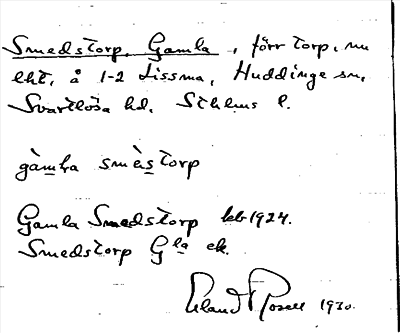 Smedstorp, Gamla, förr torp, nu
lht, å 1-2 Lissma, Huddinge sn,
Svartlösa hd. Sthlms l.
gàmla smès torp
Gamla Smedstorp kb 1924.
Smedstorp Gla ek.
Erland Rosell 1930.